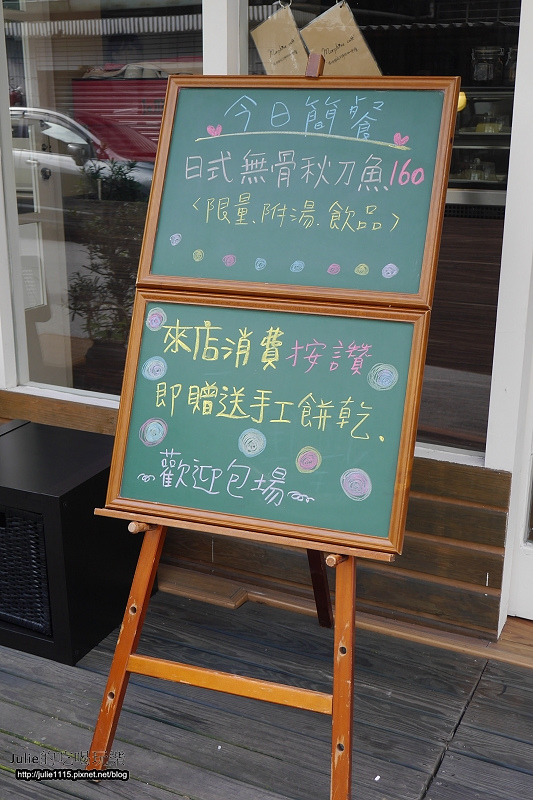 今日簡餐
日式無骨秋刀魚160
<限量.附湯.飲品>
來店消費按讚
即贈送手工餅乾.
~歡迎包場~
http://julie1115.pixnet.net/blog